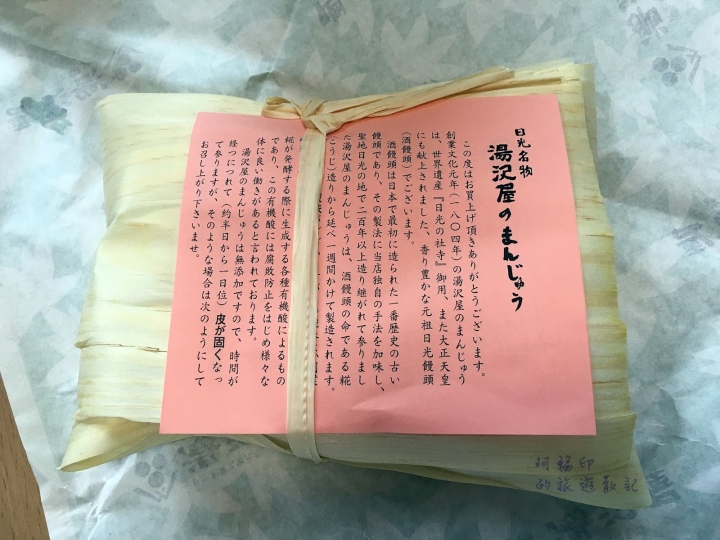 日光名物
湯沢屋のまんじゅう
この度はお買上げ頂きありがとうございます。
創業文化元年（一八〇四年）の湯沢屋のまんじゅう
は、世界遺産『日光の社寺』御用、また大正天皇
にも献上されました、香り豊かな元祖日光饅頭
（酒饅頭）でございます。
酒饅頭は日本で最初に造られた一番歴史の古い
饅頭であり、その製法に当店独自の手法を加味し、
聖地日光の地で二百年以上造り継がれて参りまし
た湯沢屋のまんじゅうは、酒饅頭の命である糀
（こうじ）造りから延べ一週間かけて製造されます。
糀が発酵する際に生成する各種有機酸によるもの
であり、この有機酸には腐敗防止をはじめ様々な
体に良い働きがあると言われております。
湯沢屋のまんじゅうは無添加ですので、時間が
経つにつれて（約半日から一日位）皮が固くなっ
て参りますが、そのような場合は次のようにして
お召し上がり下さいませ。
阿福印
的旅遊散記